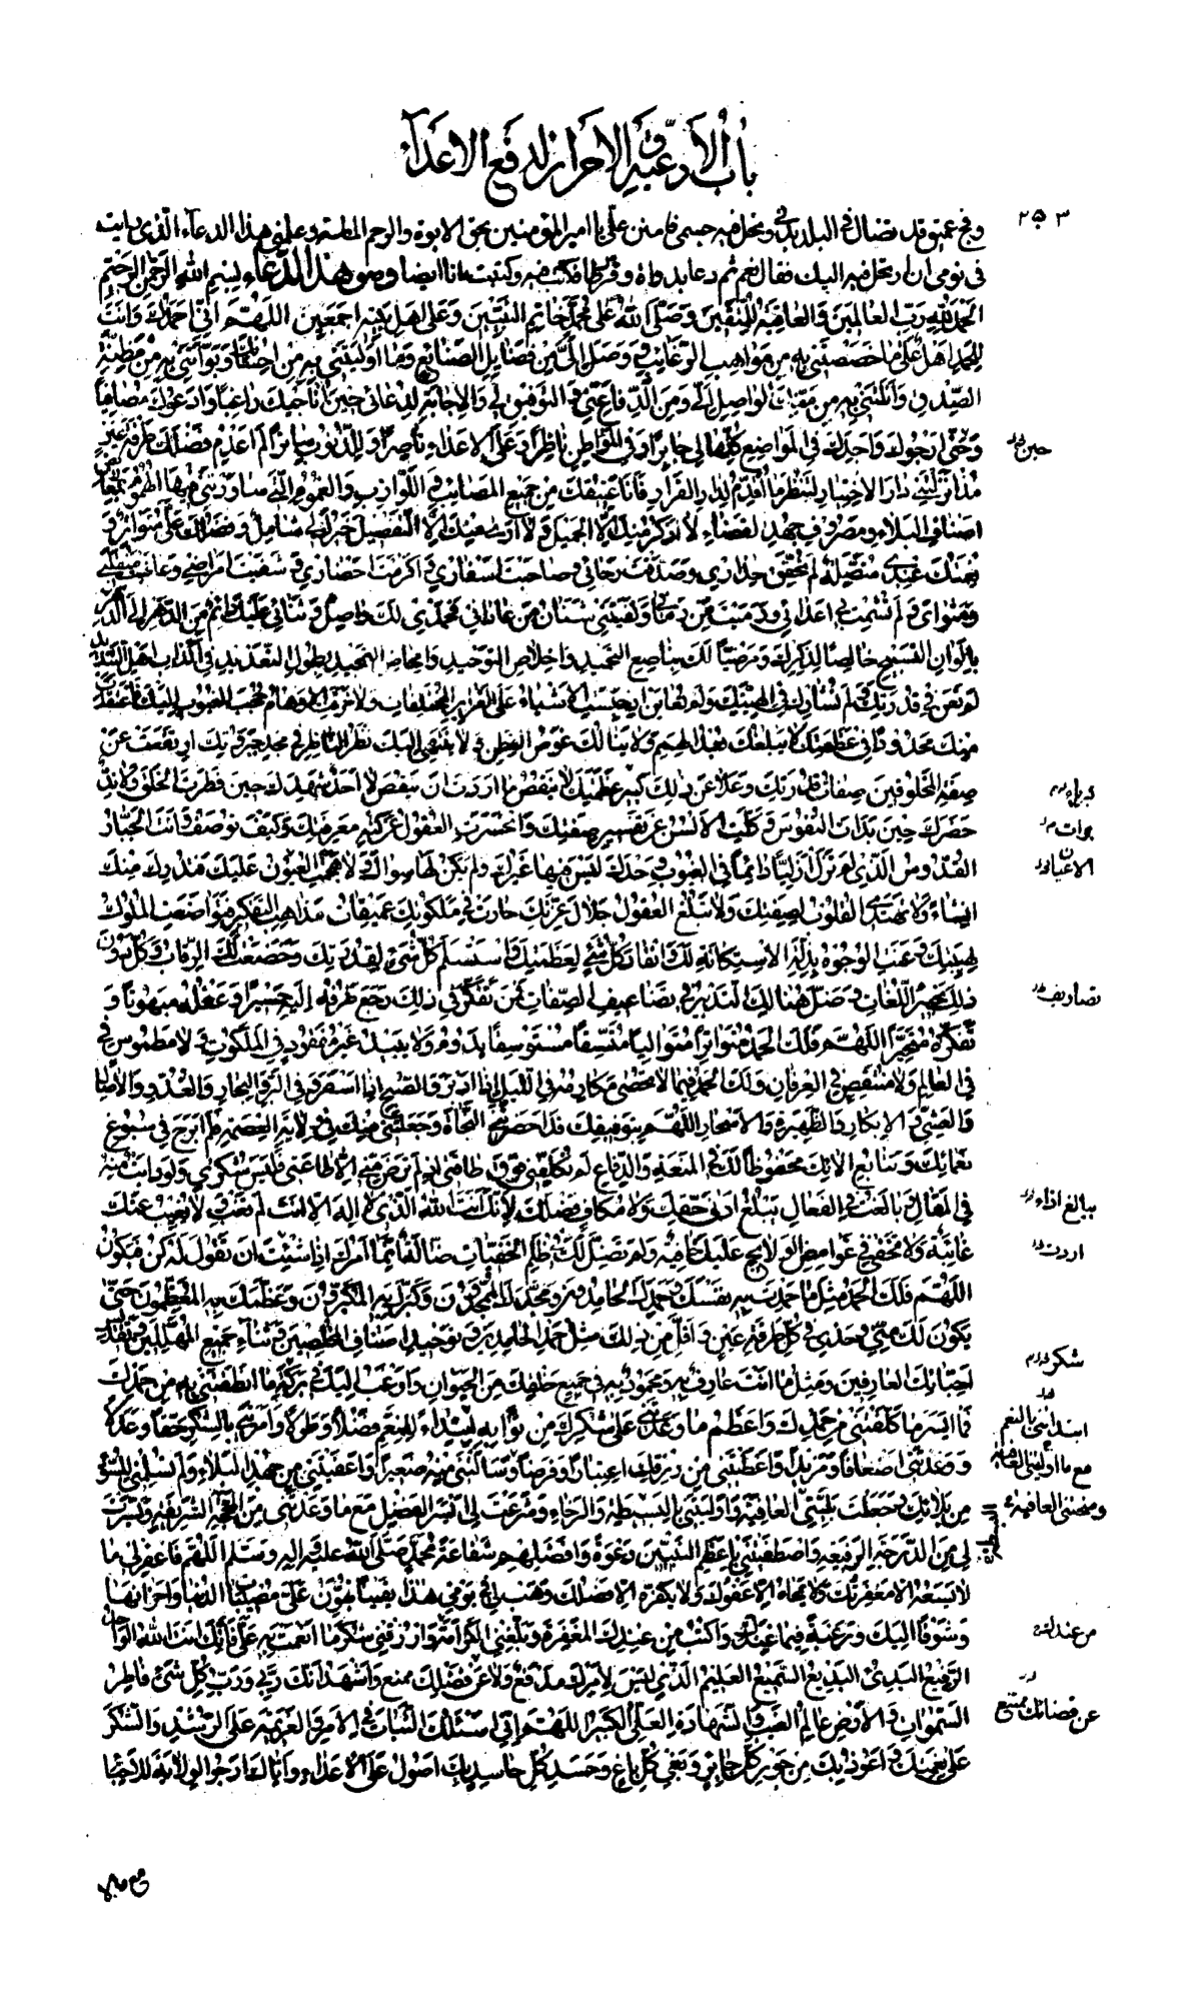 باب الأدعية و الاحراز لدفع الاعداء
٢٥٣
وفج عميق قد تضال في البلد بدني ونحل فيه جسمي فامنن علي يا امير المؤمنين بحق الابوة والرحم الماسة وعلمني هذا الدعاء الذي رايت
في نومي ان ارتحل فيه اليك فقال نعم ثم دعا بدواة وقرطاس فكتب فيه وكتبت انا ايضا وهو هذا الدعاء بسم الله الرحمن الرحيم
الحمد لله رب العالمين والعاقبة للمتقين وصلى الله على محمد خاتم النبيين وعلى اهل بيته اجمعين اللهم اني احمدك وانت
للحمد اهل على ما خصصتني به من مواهب الرغائب ووصل الي من فضايل الصنائع وما اوليتني به من احسانك وبوأتني به من مظنة
الصدق وانلتني به من مننك الواصلة الي ومن الدفاع عني والتوفيق لي والاجابة لدعائي حين اناجيك راغبا وادعوك مصافيا
وحتى ارجوك واجدك في المواضع كلها لي جابرا وفي المواطن ناظرا وعلى الاعداء ناصرا وللذنوب ساترا لم اعدم فضلك طرفة عين
حين خ
منذ انزلتني دار الاختبار لتنظر ما اقدم لدار القرار فانا عتيقك من جميع المصائب في اللوازب والغموم التي ساورتني فيها الهموم
اصناف البلاء ومصروف جهد القضاء لا اذكر منك الا الجميل ولا ارى منك الا التفضيل خيرك لي شامل وفضلك علي متواتر و
نعمتك عندي متصلة لم تحقق حذاري وصدقت رجائي وصاحبت اسفاري واكرمت احضاري وشفيت امراضي وعافيت منقلبي
ومثواي ولم تشمت بي اعدائي ورميت من رماني وكفيتني شنآن من عاداني فحمدي لك واصل وثنائي عليك دائم من الدهر الى الدهر
بالوان التسبيح خالصا لذكرك ومرضيا لك بناصع التحميد واخلاص التوحيد وامحاض التمجيد بطول التعديد في اكذاب اهل التنديد
لم تعن في قدرتك ولم تشارك في الهيتك ولم تعاين اذ حبست الاشياء على الغرائز المختلفات ولا خرقت الاوهام حجب الغيوب اليك فاعتقدت
منك محدودا في عظمتك لا يبلغك بعد الهمم ولا ينالك غوص الفطن ولا ينتهي اليك نظر الناظر في مجد جبروتك ارتفعت عن
صفة المخلوقين صفات قدرتك وعلا عن ذلك كبير عظمتك لا ينقص ما اردت ان ينقص لا احد شهدك حين فطرت الخلق ولا ند
حضرك حين برأت النفوس وكلت الالسن عن تفسير صفتك وانحسرت العقول عن كنه معرفتك وكيف توصف وانت الجبار
القدوس الذي لم تزل ازليا دائما في الغيوب وحدك ليس فيها غيرك ولم يكن لها سواك ولا هجمت العيون عليك فتدرك منك
انشاء ولا تهتدي القلوب لصفتك ولا تبلغ العقول جلال عزتك حارت في ملكوتك عميقات مذاهب التفكير فتواضعت الملوك
لهيبتك وعنت الوجوه بذلة الاستكانة لك وانقاد كل شيء لعظمتك واستسلم كل شيء لقدرتك وخضعت لك الرقاب وكل دون
ذلك تحبير اللغات وضل هنالك التدبير في تضاعيف الصفات فمن تفكر في ذلك رجع طرفه اليه حسيرا وعقله مبهوتا و
تصاريف خ
تفكره متحيرا اللهم فلك الحمد متواترا متواليا متسقا مستوسقا يدوم ولا يبيد غير مفقود في الملكوت ولا مطموس
في العالم ولا منتقص في العرفان ولك الحمد فيما لا تحصى مكارمه في الليل اذا ادبر والصبح اذا اسفر وفي البر والبحار والغدو والآصال
والعشي والابكار والظهيرة والاسحار اللهم بتوفيقك قد احضرتني النجاة وجعلتني منك في ولاية العصمة فلم ابرح في سبوغ
نعمائك وتتابع الائك محفوظا لك في المنعة والدفاع لم تكلفني فوق طاقتي اذ لم ترض مني الا طاعتي فليس شكري ولو دابت منه
في المقال وبالغت في الفعال يبلغ ادنى حقك ولا مكاف فضلك لانك انت الله الذي لا اله الا انت لم تغب ولا تغيب عنك
غائبة ولا تخفى في غوامض الولايج عليك خافية ولم تضل لك في ظلم الخفيات ضالة انما امرك اذا شئت ان تقول له كن فيكون
اردت خ
اللهم فلك الحمد مثل ما حمدت به نفسك وحمدك الحامدون ومجدك الممجدون وكبرك به المكبرون وعظمك به المعظمون حتى
يكون لك مني وحدي في كل طرفة عين واقل من ذلك مثل حمد الحامدين وتوحيد اصناف المخلصين وثناء جميع المهللين وتقديس
احبائك العارفين ومثل ما انت عارف به ومحمود به في جميع خلقك من الحيوان وارغب اليك في بركة ما انطقتني به من حمدك
شكر خ
فما ايسر ما كلفتني من حمدك واعظم ما وعدتني على شكرك من ثوابه ابتداء للنعم فضلا وطولا وامرتني بالشكر حقا وعدلا
ابتدأتني بالنعم
ووعدتني اضعافا ومزيدا واعطيتني من رزقك اعتبارا وفرضا وسالتني منه صغيرا واعفيتني من جهد البلاء ولم تسلمني للسوء
مع ما اوليتني
من بلائك وجعلت بليتي العافية واوليتني بالبسطة والرخاء وشرعت لي ايسر الفضل مع ما وعدتني من المحجة الشريفة ويسرت
ومنحتني العافية
لي من الدرجة الرفيعة واصطفيتني باعظم النبيين دعوة وافضلهم شفاعة محمد صلى الله عليه واله وسلم اللهم فاغفر لي ما
لا يسعه الا مغفرتك ولا يمحاه الا عفوك ولا يكفره الا فضلك وهب لي في يومي هذا يقينا يهون علي مصيبات الدنيا واحزانها
وشوقا اليك ورغبة فيما عندك واكتب لي من عندك المغفرة وبلغني الكرامة وارزقني شكر ما انعمت به علي فانك انت الله الواحد
من عندك خ
الرفيع البدئ البديع السميع العليم الذي ليس لامرك مدفع ولا عن فضلك ممتنع واشهد انك ربي ورب كل شيء فاطر
السموات والارض عالم الغيب والشهادة العلي الكبير اللهم اني اسئلك الثبات في الامر والعزيمة على الرشد والشكر
عن قضائك ممتنع
على نعمتك واعوذ بك من جور كل جائر وبغي كل باغ وحسد كل حاسد بك اصول على الاعداء واياك ارجو الولاية للاحباء